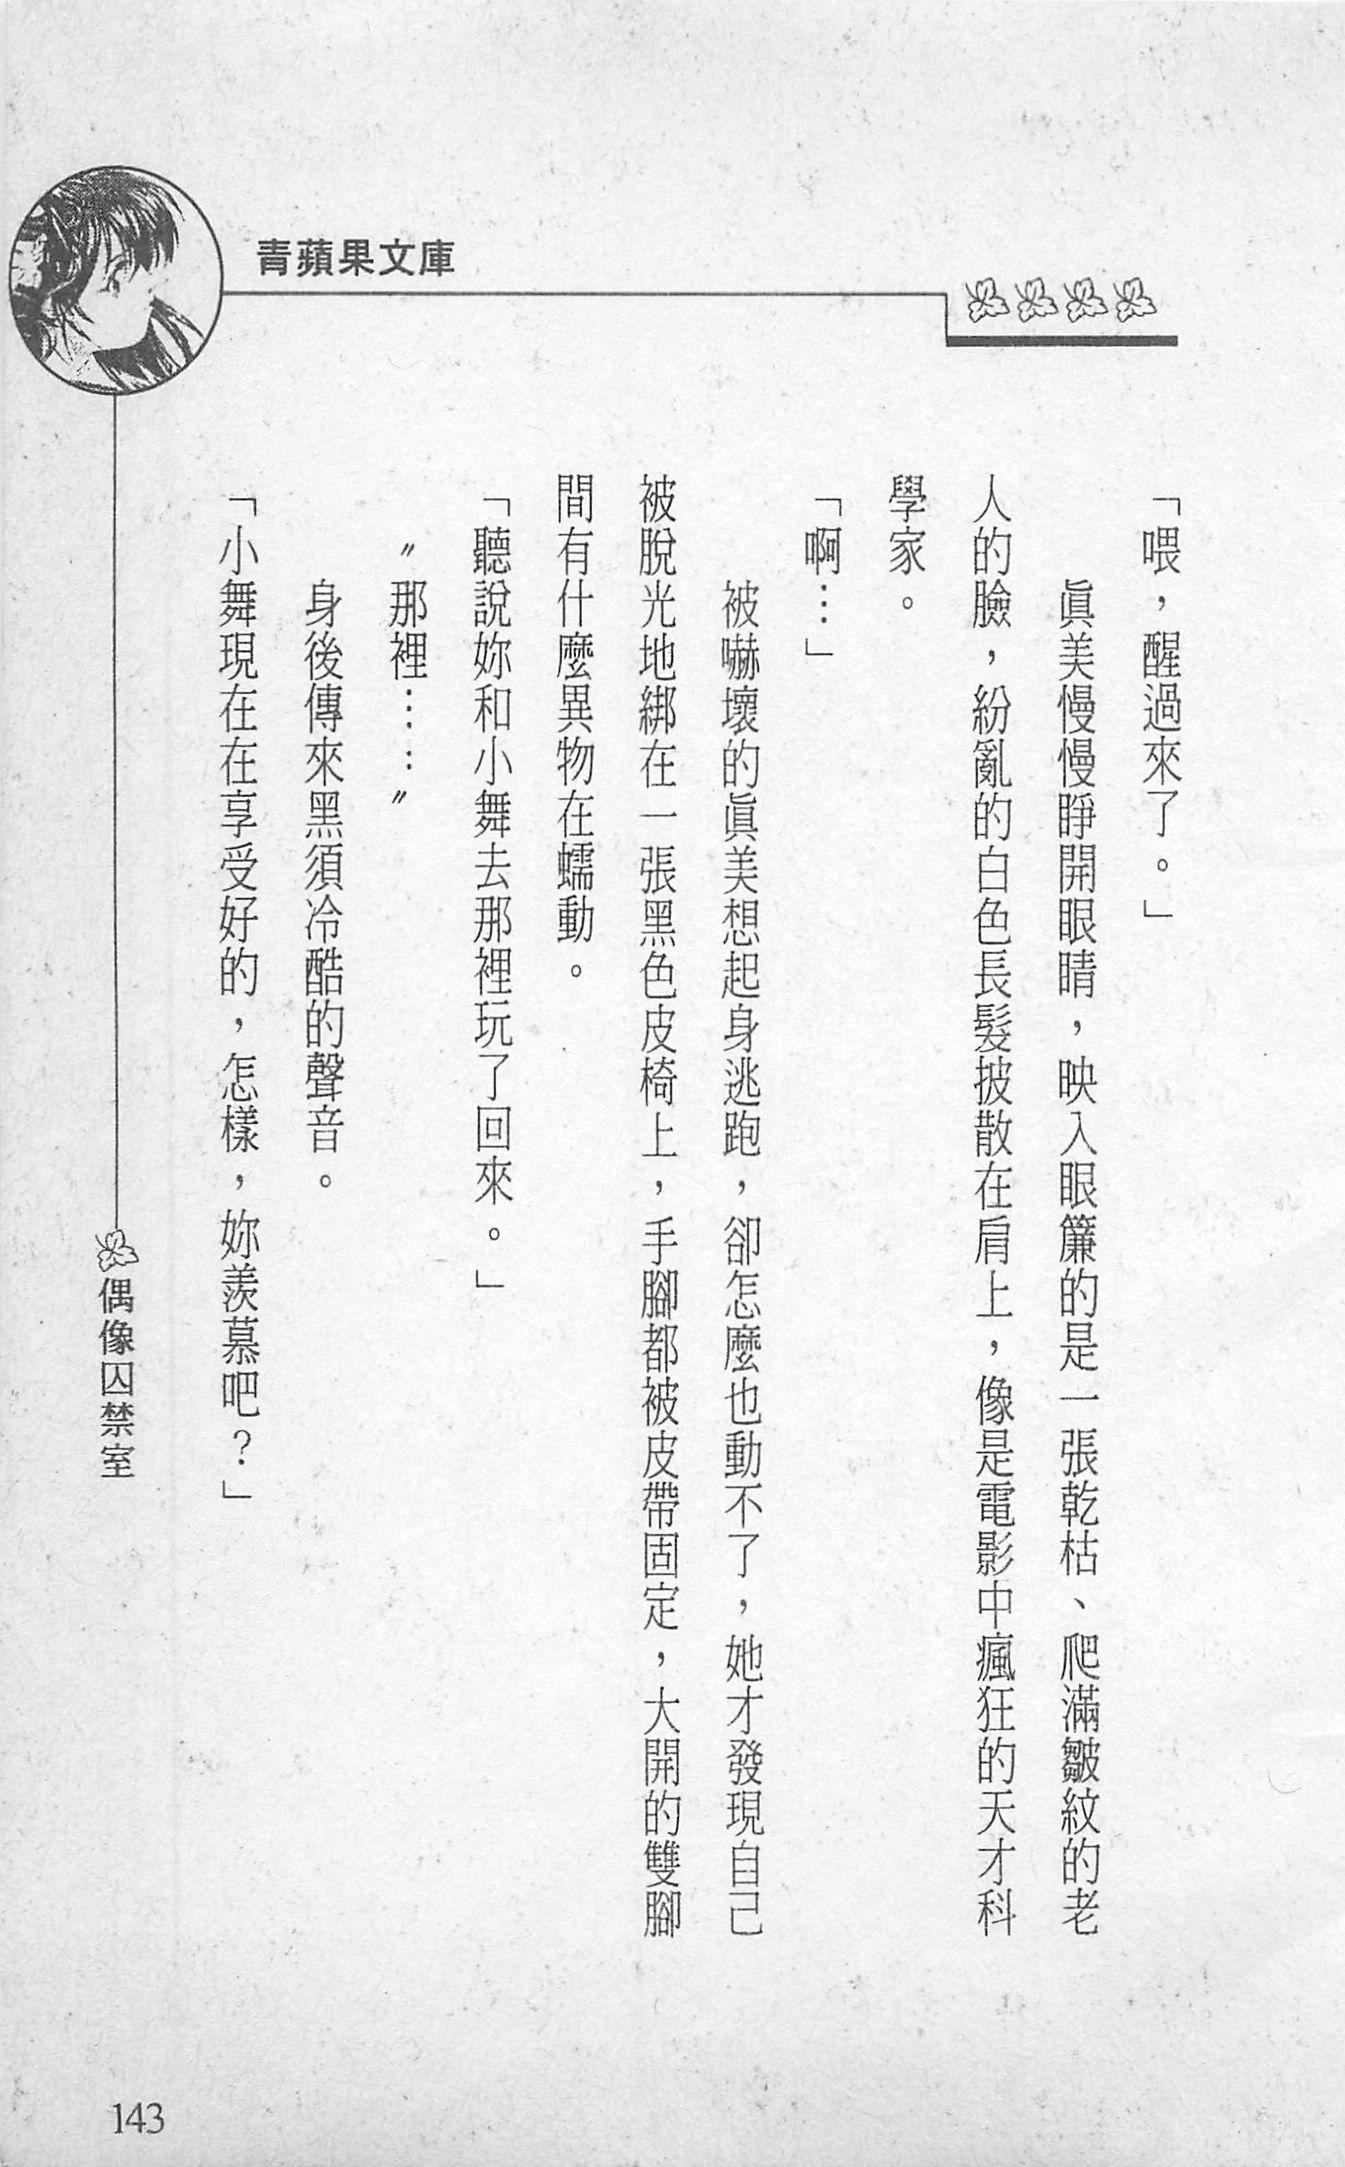 青蘋果文庫
「喂，醒過來了。」
眞美慢慢睜開眼睛，映入眼簾的是一張乾枯、爬滿皺紋的老
人的臉，紛亂的白色長髮披散在肩上，像是電影中瘋狂的天才科
學家。
「啊…」
被嚇壞的眞美想起身逃跑，卻怎麼也動不了，她才發現自己
被脫光地綁在一張黑色皮椅上，手腳都被皮帶固定，大開的雙腳
間有什麼異物在蠕動。
「聽說妳和小舞去那裡玩了回來。」
〝那裡……〞
身後傳來黑須冷酷的聲音。
「小舞現在在享受好的，怎樣，妳羨慕吧？」
偶像囚禁室
143